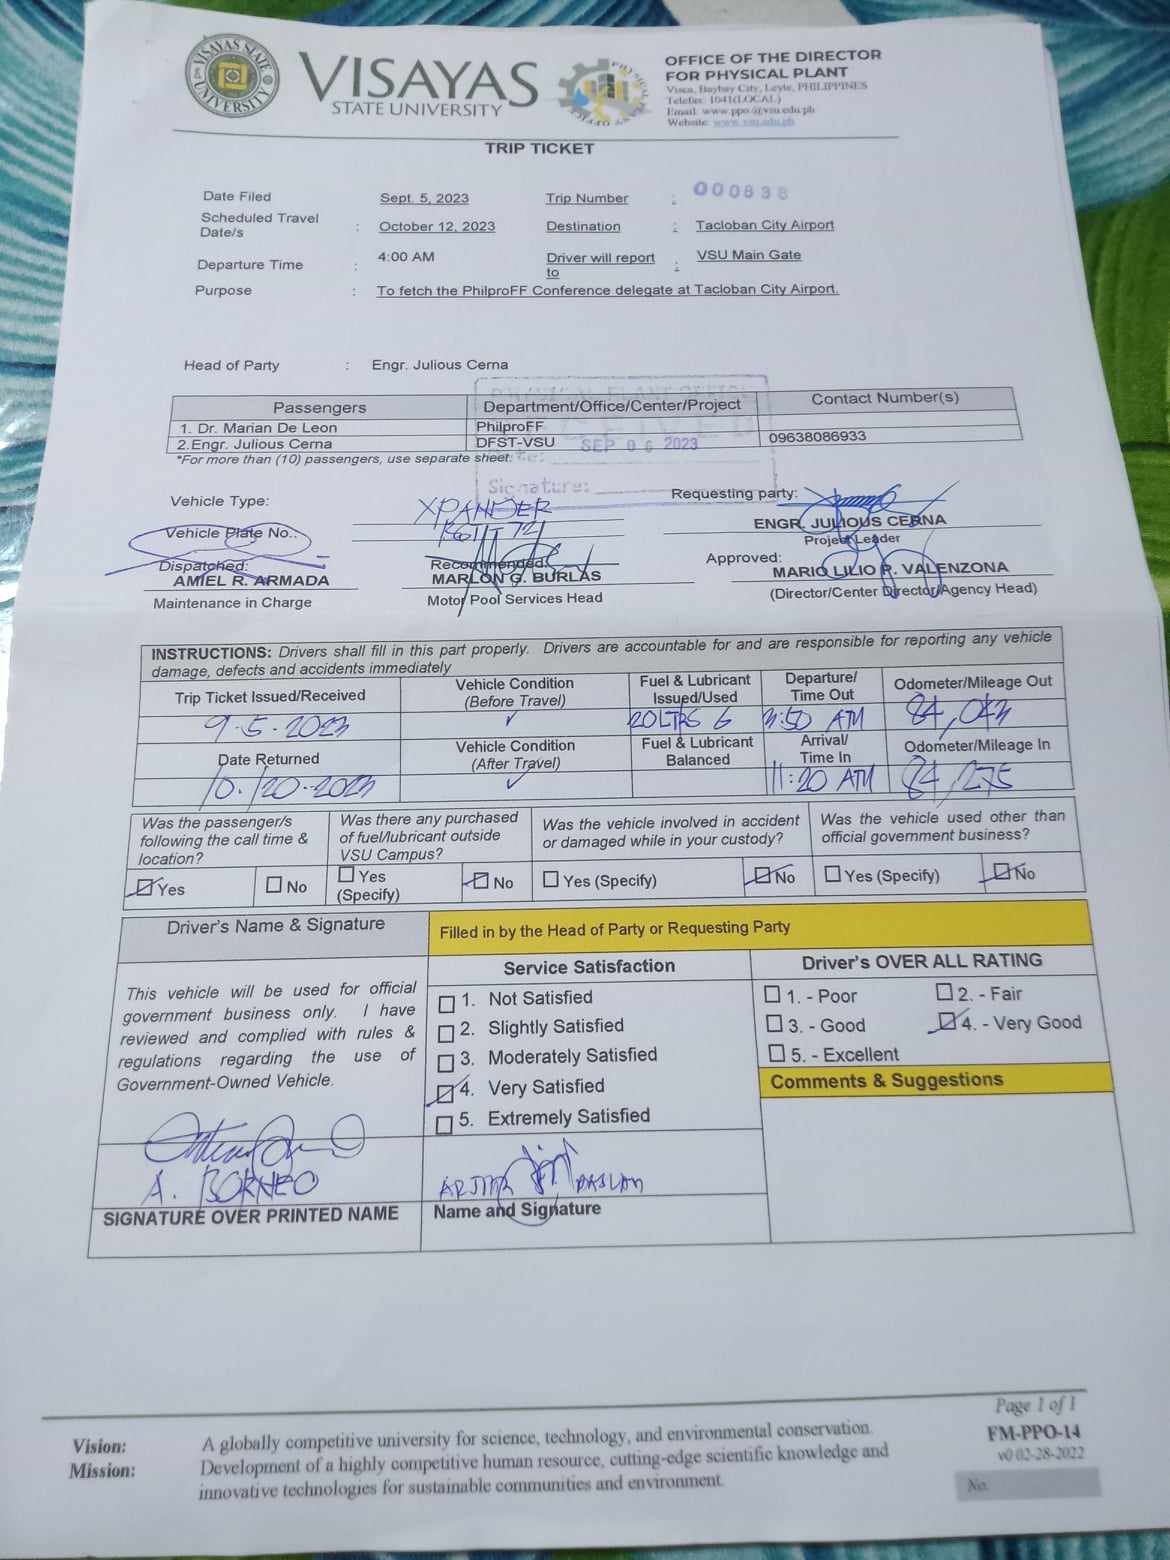 VISAYAS STATE UNIVERSITY
VISAYAS
STATE UNIVERSITY
OFFICE OF THE DIRECTOR
FOR PHYSICAL PLANT
Visca, Baybay City, Leyte, PHILIPPINES
Telefax: 1041(LOCAL)
Email: www.ppo.@vsu.edu.ph
Website: www.vsu.edu.ph
TRIP TICKET
Date Filed Sept. 5, 2023 Trip Number : 000838
Scheduled Travel Date/s : October 12, 2023 Destination : Tacloban City Airport
Departure Time : 4:00 AM Driver will report to : VSU Main Gate
Purpose : To fetch the PhilproFF Conference delegate at Tacloban City Airport.
Head of Party : Engr. Julious Cerna
Passengers Department/Office/Center/Project Contact Number(s)
1. Dr. Marian De Leon PhilproFF
2.Engr. Julious Cerna DFST-VSU 09638086933
PHYSICAL PLANT OFFICE
RECEIVED
SEP 06 2023
Date:
Signature:
*For more than (10) passengers, use separate sheet.
Vehicle Type: XPANDER
Requesting party:
Vehicle Plate No.:
ENGR. JULIOUS CERNA
Project Leader
Dispatched: Recommended: Approved:
AMIEL R. ARMADA MARLON G. BURLAS MARIO LILIO P. VALENZONA
Maintenance in Charge Motor Pool Services Head (Director/Center Director/Agency Head)
INSTRUCTIONS: Drivers shall fill in this part properly. Drivers are accountable for and are responsible for reporting any vehicle
damage, defects and accidents immediately
Trip Ticket Issued/Received Vehicle Condition (Before Travel) Fuel & Lubricant Issued/Used Departure/ Time Out Odometer/Mileage Out
9-5-2023 ✓ 20LTRS G 3:50 AM 84,043
Date Returned Vehicle Condition (After Travel) Fuel & Lubricant Balanced Arrival/ Time In Odometer/Mileage In
10-/20-2023 ✓ 11:20 AM 84,275
Was the passenger/s following the call time & location?
Was there any purchased of fuel/lubricant outside VSU Campus?
Was the vehicle involved in accident or damaged while in your custody?
Was the vehicle used other than official government business?
Yes No Yes (Specify) No Yes (Specify) No Yes (Specify) No
Driver's Name & Signature
Filled in by the Head of Party or Requesting Party
This vehicle will be used for official
government business only. I have
reviewed and complied with rules &
regulations regarding the use of
Government-Owned Vehicle.
A. BORNEO
SIGNATURE OVER PRINTED NAME
Service Satisfaction
1. Not Satisfied
2. Slightly Satisfied
3. Moderately Satisfied
4. Very Satisfied
5. Extremely Satisfied
Name and Signature
Driver's OVER ALL RATING
1. - Poor 2. - Fair
3. - Good 4. - Very Good
5. - Excellent
Comments & Suggestions
Page 1 of 1
FM-PPO-14
v0 02-28-2022
No.
Vision: A globally competitive university for science, technology, and environmental conservation.
Mission: Development of a highly competitive human resource, cutting-edge scientific knowledge and
innovative technologies for sustainable communities and environment.